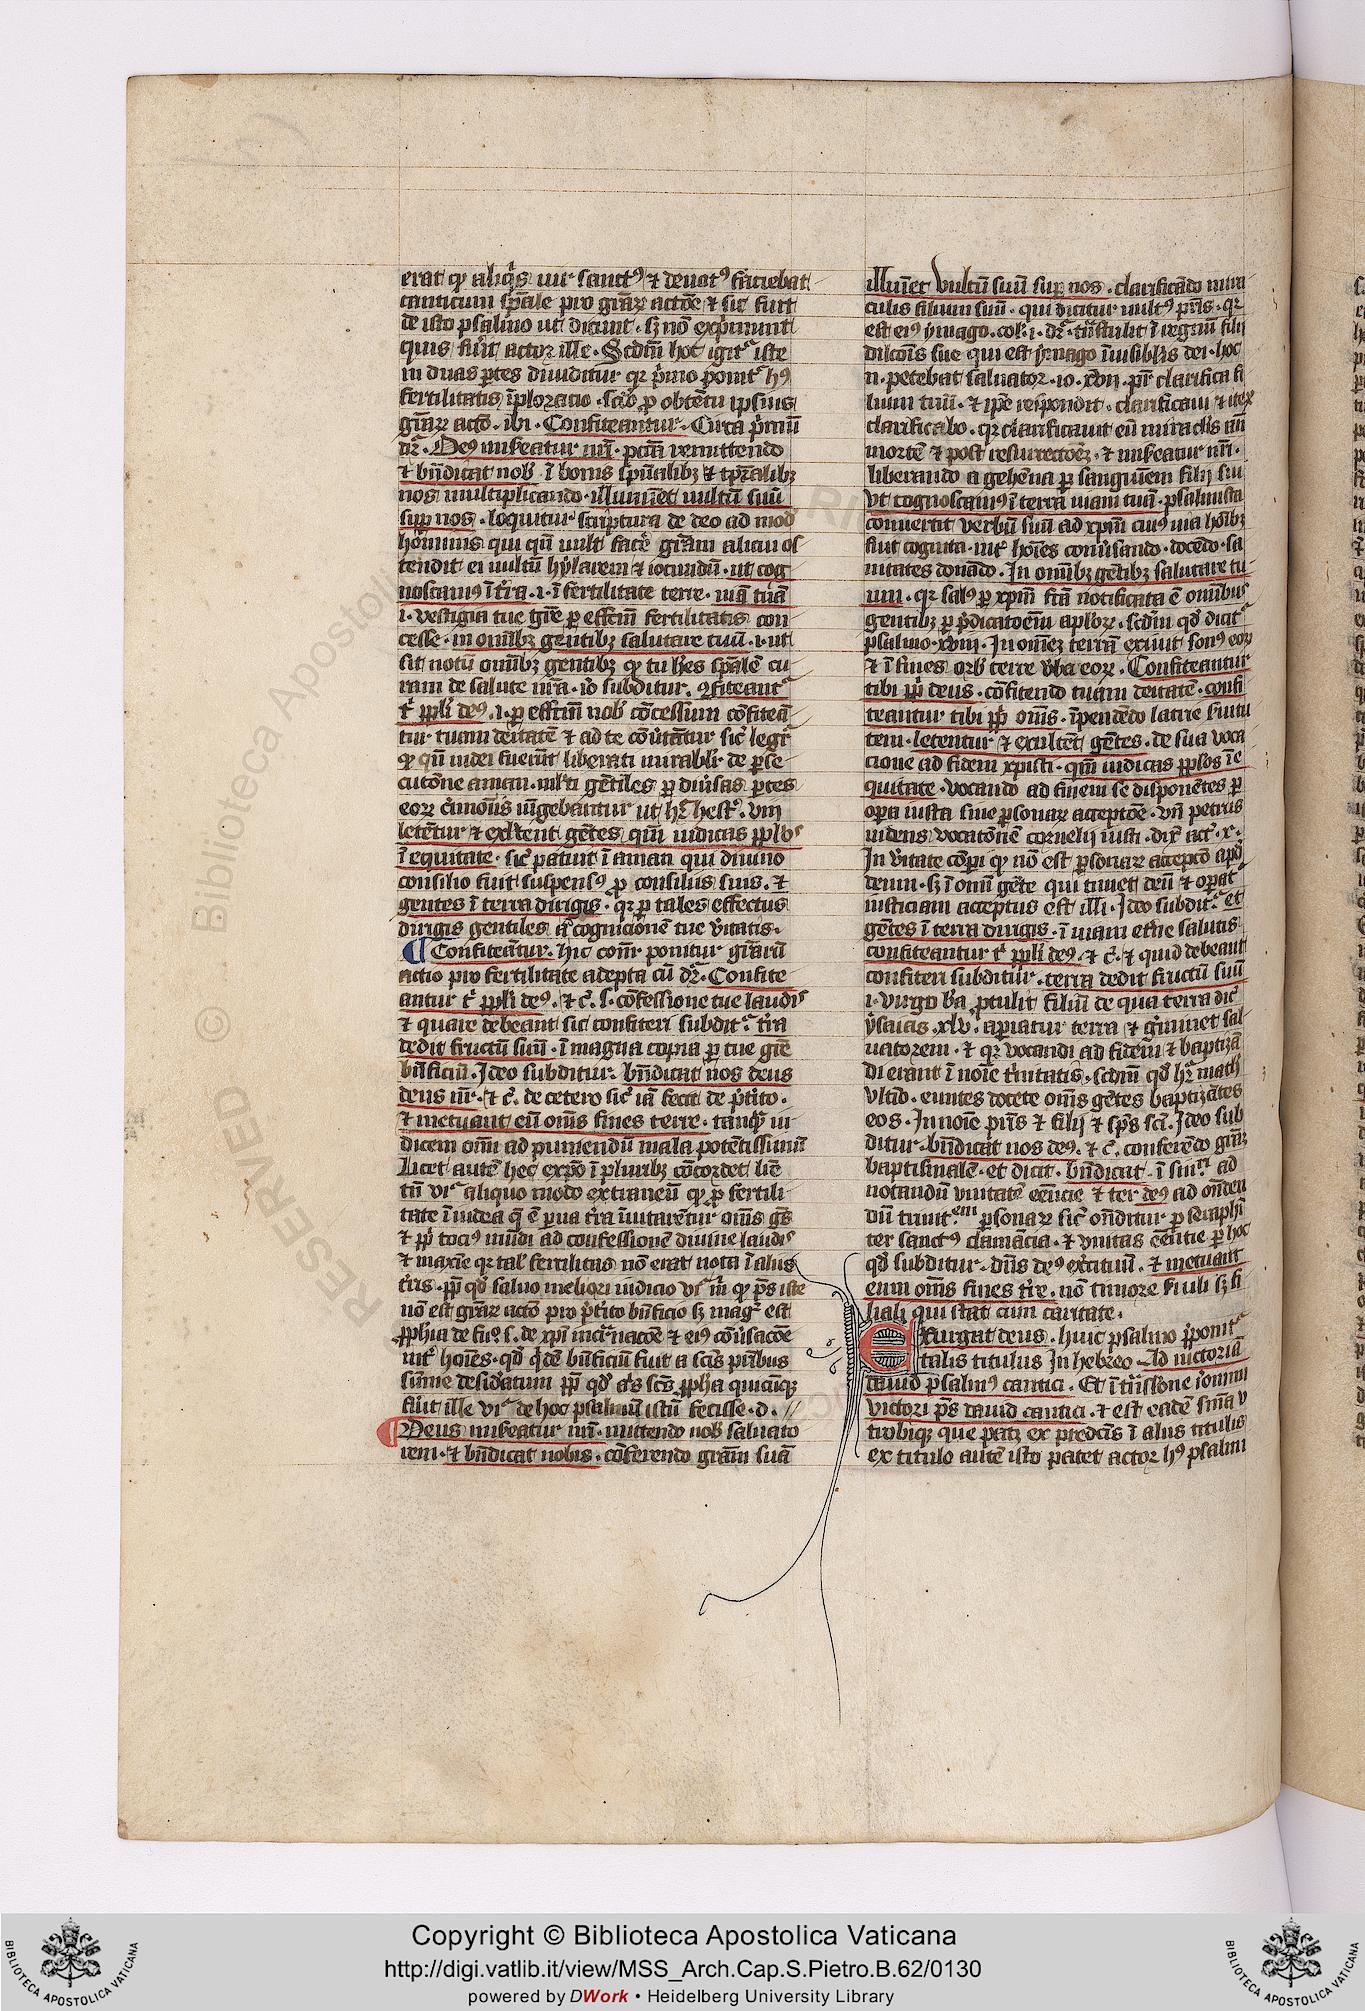 erat qͥ aliqͥs vir sanctꝰ ⁊ deuotꝰ faciebat
canticum spāle pro gr̄aꝝ actōe ⁊ sic fuit
de isto psalmo ut dicunt . sꝫ nō exprimunt
quis fuit actor ille . Scd̄m hoc igitᷣ iste
in duas ꝑtes diuiditur qꝛ pͥmo ponitᷣ hꝰ
fertilitatis īploracio . scd̄o ꝓ obtētu ipsius
gr̄aꝝ actō . ibi . Confiteantur . Circa pͥmū
dr̄ . Deꝰ misereatur nr̄i . pcc̄ā remittendo
⁊ bn̄dicat nob̾ . ī bonis spūalibꝫ ⁊ tp̄ralibꝫ
nos multiplicando . illuminet vultū suū
suꝑ nos . loquitur scriptura de deo ad modū
hominis qui qn̄ vult facere gr̄am alicui os
tendit ei vultū hylarem ⁊ iocundū . ut cog
noscamus ī tr̄a . i . ī fertilitate terre . viā tuā
i . vestigia tue gr̄e ꝑ effc̄m fertilitatis con
cesse . in omībꝫ gentibꝫ salutare tuū . i . ut
sit notū omībꝫ gentibꝫ qͥ tu hēs spālē cu
ram de salute nr̄a . iō subditur . ꝯfiteantᷣ
tͥ ppl̄i deꝰ . i . ꝑ effc̄m nob̾ cōcessum cōfiteā
tur tuam deitatē ⁊ ad te cōu̾tātur sic̄ legiᷣ
qͥ qn̄ iudei fuerūt liberati mirabilr̄ de ꝑse
cutōne aman . ml̄ti gētiles ꝑ diu̾sas ꝑtes
eoꝝ ciͥmonijs iūgebantur ut hr̄ hestᷣ . viij
letētur ⁊ exultent gētes qm̄ iudicas pplōs
ī equitate . sic̄ patuit ī aman qui diuino
consilio fuit suspensꝰ ꝓ consiliis suis . ⁊
gentes ī terra dirigis . qꝛ ꝑ tales effectus
dirigis gentiles ad cognicionē tue v̾itatis .
¶ Confiteātur . hic con̄r ponitur gr̄arū
actio pro fertilitate adepta cū dr̄ . Confite
antur tͥ ppl̄i deꝰ . ⁊ c̄ . s . cōfessione tue laudis
⁊ quare debeant sic confiteri subditᷣ . tr̄a
dedit fructū suū . ī magna copia ꝑ tue gr̄e
bn̄ficiū . Ideo subditur . bn̄dicat nos deus
deus nr̄ . ⁊ c̄ . de cetero sic̄ iā fecit de p̄t̾ito .
⁊ metuant eū om̄s fines terre . tanqͣ iu
dicem om̄i ad puniendū mala potētissimū
Licet autē hec expō ī pluribꝫ cōcordet lr̄e
tn̄ vr̄ aliquo modo extraneū qͥ ꝓ fertili
tate ī iudea q̄ ē ꝑua tr̄a īuitarētur om̄s gētes
⁊ pp̄li tociꝰ mūdi ad confessionē diuine laudis
⁊ maxīe qꝛ tal̾ fertilitas nō erat nota ī aliis
tr̄is . pp̄ qd̾ saluo meliori iudicio vr̄ m̄ qͥ ps̄ iste
nō est gr̄aꝝ actō pro p̄t̾ito bn̄ficio sꝫ magͥ est
ꝓphīa de fuͦ . s . de xp̄i incarnacōe ⁊ eiꝰ cōu̾sacōe
int̾ hoīes . qd̾ qͥdē bn̄ficiū fuit a sc̄is pr̄ibus
sūme desid̾atum pp̄ qd̾ al̾s sc̄s ꝓpha quicūqꝫ
fuit ille vr̄ de hoc psalmū istū fecisse . d . //
¶ Deus misereatur nr̄i . mittendo nob̾ saluato
rem . ⁊ bn̄dicat nobis . cōferendo gr̄am suā
illuīet vultū suū suꝑ nos . clarificādo mira
culis filium suū . qui dicitur vultꝰ pr̄is . qꝛ
est eiꝰ ymago . col̾ . i . dr̄ . tr̄stulit ī regnū filij
dilcōis sue qui est ymago īuisibilis dei . hoc
n . petebat saluator . io . xvij . pr̄ clarifica fi
lium tuū . ⁊ ip̄e respondit . clarificaui ⁊ iteꝝ
clarificabo . qꝛ clarificauit eū miraclis añ
mortē ⁊ post resurrectōeꝫ . ⁊ misereatur nr̄i .
liberando a gehēna ꝑ sanguinem filij sui
Vt cognoscamꝰ ī terra viam tuā . psalmista
conuertit verbū suū ad xp̄m cuiꝰ via hoībꝫ
fuit cognita . int̾ hoīes conu̾sando . docēdo . sa
nitates donādo . In omībꝫ gētibꝫ salutare tu
um . qꝛ salꝰ ꝑ xp̄m fc̄ā notificata ē omībus
gentibꝫ ꝑ p̄dicatōem apl̄oꝝ . scd̄m qd̾ dicitᷣ
psalmo . xviij . In omnē terrā exiuit sonꝰ eoꝝ
⁊ ī fines orb̾ terre v̾ba eoꝝ . Confiteantur
tibi pp̄li deus . cōfitendo tuam deitatē . confi
teantur tibi pp̄li om̄s . īpendēdo latrie s̾uitu
tem . letentur ⁊ exultēt gētes . de sua voca
cione ad fidem xp̄isti . qm̄ iudicas pplōs ī e
quitate . vocando ad finem se disponētes ꝑ
opera iusta sine ꝑsonaꝝ acceptōe . vn̄ petrus
videns vocatōnē cornelij iusti . dix̄ act̄ . x .
In v̾itate cōperi qͥ nō est ꝑsonaꝝ acceptō apd̾
deum . sꝫ ī om̄i gēte qui timet deū ⁊ operatᷣ
iusticiam acceptus est illi . Ideo subditᷣ . et
gētes ī terra dirigis . ī viam et̾ne salutis
confiteantur tͥ ppl̄i deꝰ . ⁊ c̄ . ⁊ quid debeant
confiteri subditur . terra dedit fructū suū
i . virgo b̄a ꝓtulit filiū de qua terra dic̄
ysaias . xlv . apiatur terra ⁊ g̾minet sal
uatorem . ⁊ qꝛ vocandi ad fidem ⁊ baptizā
di erant ī noīe tͥnitatis . scd̄m qd̾ hr̄ math̾
vltīo . euntes docete om̄s gētes baptizātes
eos . In noīe pr̄is ⁊ filij ⁊ sp̄s sc̄i . Ideo sub
ditur . bn̄dicat nos deꝰ . ⁊ c̄ . conferēdo gr̄aꝫ
baptismalē . et dicit . bn̄dicat . ī sin̄ri ad
notandū vnitatē eēncie ⁊ ter deꝰ ad on̄den
dū trinit.em ꝑsonaꝝ sic̄ on̄ditur ꝑ seraphī
ter sanctꝰ clamācia . ⁊ vnitas eēntie ꝑ hoc
qd̾ subditur . dn̄s deꝰ ex̾cituū . ⁊ metuant
eum om̄s fines tr̄e . nō timore s̾uili sꝫ fi
liali qui stat cum caritate .
Exurgat deus . huic psalmo p̄ponitᷣ
talis titulus In hebreo Ad victoriā
dauid psalmꝰ cantici . Et ī tr̄issione ieronimi
victori ps̄ dauid cantici . ⁊ est eadē sn̄ia v
trobiqꝫ que patꝫ ex predc̄is ī aliis titulis
ex titulo autē isto patet actor hꝰ psalmi
Copyright © Biblioteca Apostolica Vaticana
http://digi.vatlib.it/view/MSS_Arch.Cap.S.Pietro.B.62/0130
powered by DWork • Heidelberg University Library